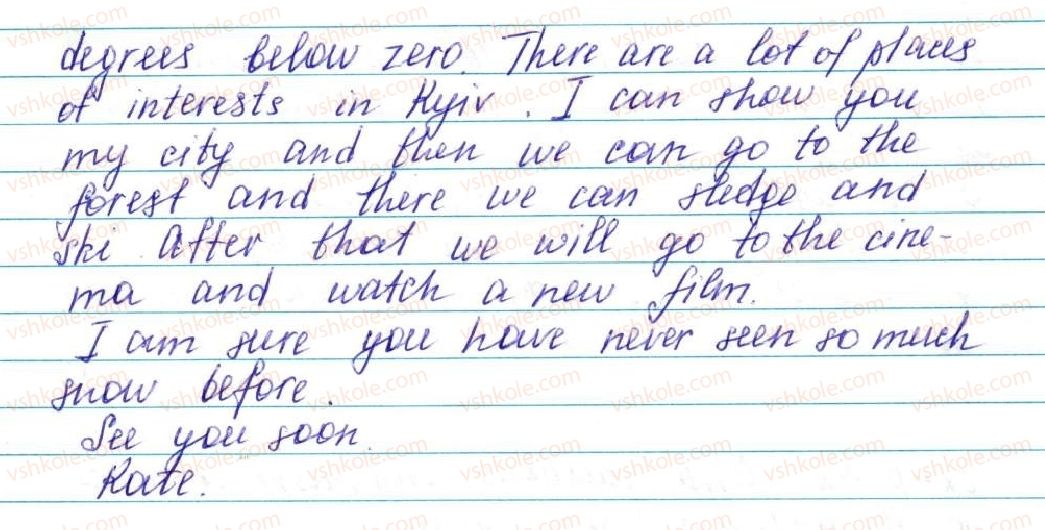 degrees below zero. There are a lot of places
of interests in Kyiv. I can show you
my city and then we can go to the
forest and there we can sledge and
ski. After that we will go to the cine-
ma and watch a new film.
I am sure you have never seen so much
snow before.
See you soon.
Kate.